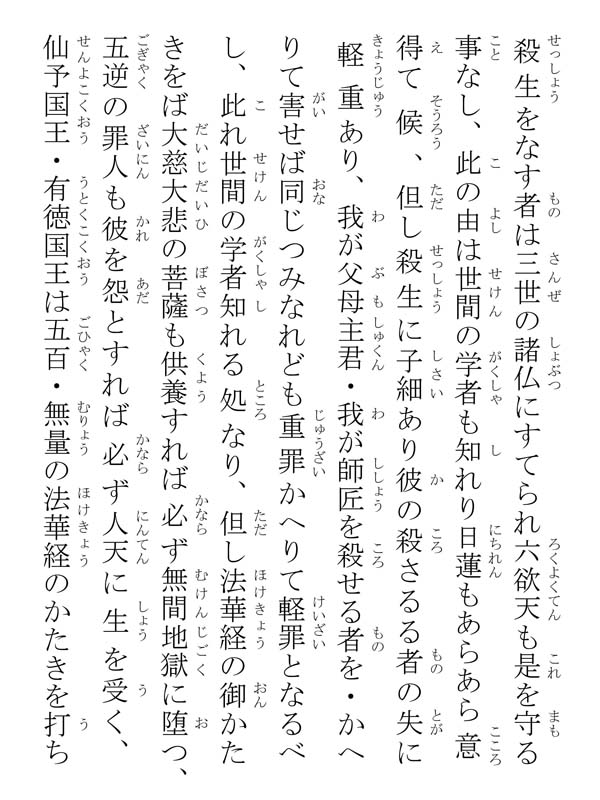 殺生をなす者は三世の諸仏にすてられ六欲天も是を守る
事なし、此の由は世間の学者も知れり日蓮もあらあら意
得て候、但し殺生に子細あり彼の殺さるる者の失に
軽重あり、我が父母主君・我が師匠を殺せる者を・かへ
りて害せば同じつみなれども重罪かへりて軽罪となるべ
し、此れ世間の学者知れる処なり、但し法華経の御かた
きをば大慈大悲の菩薩も供養すれば必ず無間地獄に堕つ、
五逆の罪人も彼を怨とすれば必ず人天に生を受く、
仙予国王・有徳国王は五百・無量の法華経のかたきを打ち